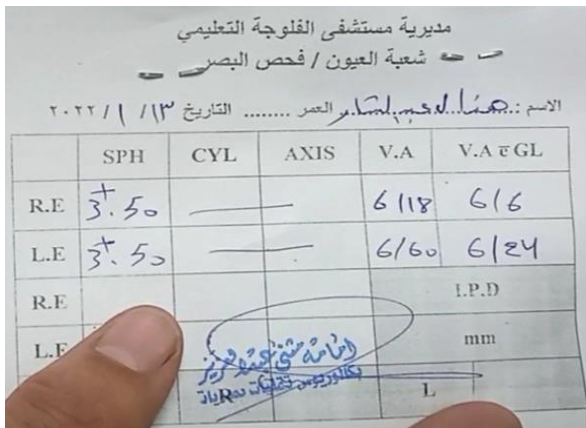 مديرية مستشفى الفلوجة التعليمي
شعبة العيون / فحص البصر
الاسم: هنا العمر ........ التاريخ ١٣ / ١ / ٢٠٢٢
SPH CYL AXIS V.A V.A c̄ GL
R.E +3.50 — 6/18 6/6
L.E +3.50 — 6/60 6/24
R.E I.P.D
L.E mm
R L